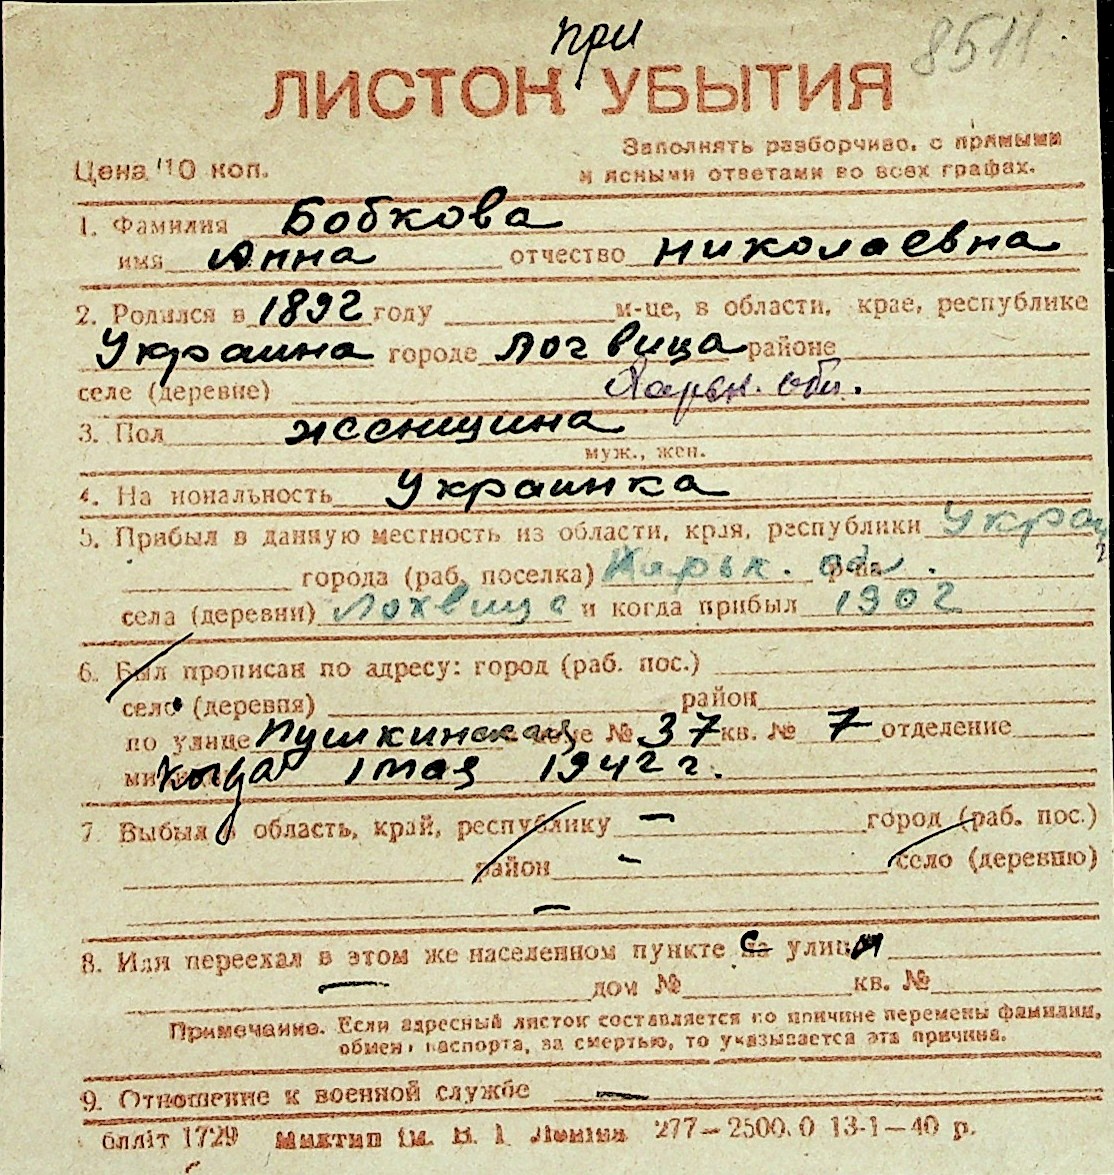 при
8511
ЛИСТОК УБЫТИЯ
Заполнять разборчиво, с прямыми
Цена 10 коп.
и ясными ответами во всех графах.
1. Фамилия Бобкова
имя Анна отчество Николаевна
2. Родился в 1892 году м-це, в области, крае, республике
Украина городе Логвица районе
селе (деревне) Харьк. обл.
3. Пол женщина
муж., жен.
4. На иональность Украинка
5. Прибыл в данную местность из области, края, республики Украи
города (раб. поселка) Харьк. обл.
села (деревни) Лохвица и когда прибыл 1902
6. Был прописан по адресу: город (раб. пос.)
село (деревня) район
по улице Пушкинская № 37 кв. № 7 отделение
когда 1 мая 1942 г.
7. Выбыл в область, край, республику — город (раб. пос.)
район - село (деревню)
—
8. Или переехал в этом же населенном пункте с улицы
— дом № кв. №
Примечание. Если адресный листок составляется по причине перемены фамилии,
обмен паспорта, за смертью, то указывается эта причина.
9. Отношение к военной службе —
блліт 1729 ім. В. І. Леніна 277—2500.0 13-1—40 р.